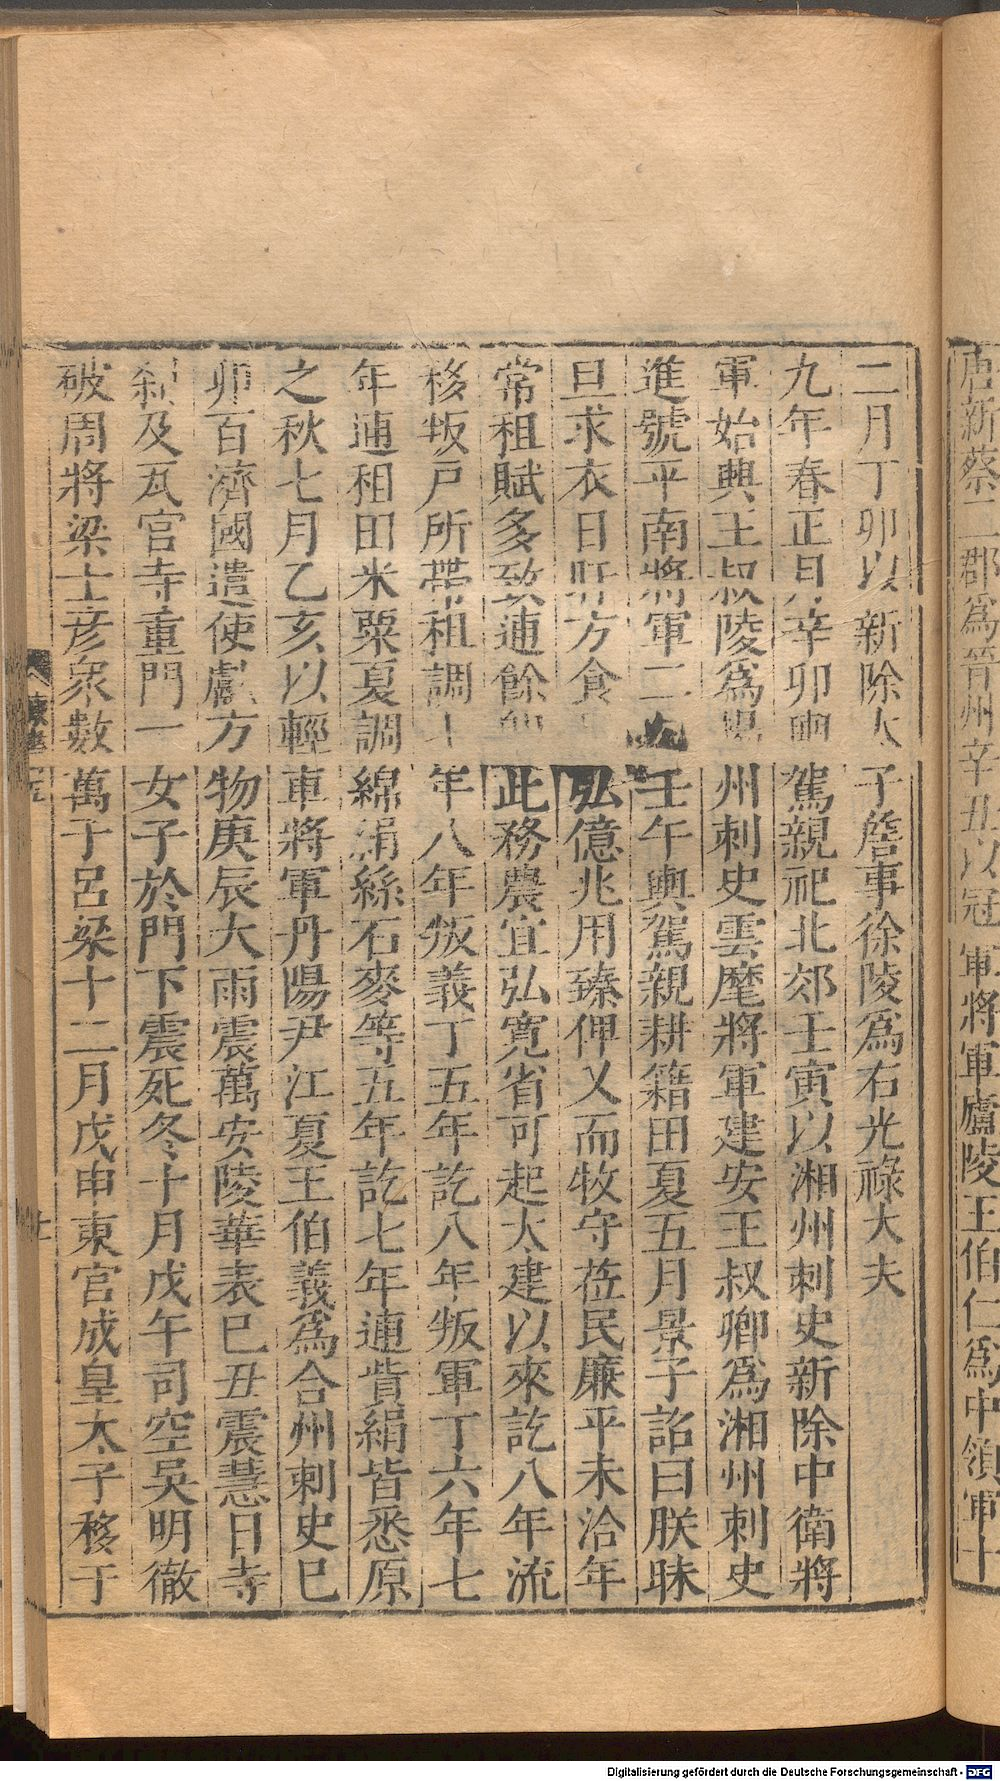 唐新蔡二郡爲晉州辛丑以冠軍將軍廬陵王伯仁爲中領軍十
二月丁卯以新除太子詹事徐陵爲右光祿大夫
九年春正月辛卯輿駕親祀北郊壬寅以湘州刺史新除中衛將
軍始興王叔陵爲揚州刺史雲麾將軍建安王叔卿爲湘州刺史
進號平南將軍二月壬午輿駕親耕籍田夏五月景子詔曰朕昧
旦求衣日旰方食弘億兆用臻俾乂而牧守莅民廉平未洽年
常租賦多致逋餘卽此務農宜弘寬省可起太建以來訖八年流
移叛戶所帶租調七年八年叛義丁五年訖八年叛軍丁六年七
年逋租田米粟夏調綿絹絲石麥等五年訖七年逋貲絹皆悉原
之秋七月乙亥以輕車將軍丹陽尹江夏王伯義爲合州刺史已
卯百濟國遣使獻方物庚辰大雨震萬安陵華表已丑震慧日寺
刹及瓦官寺重門一女子於門下震死冬十月戊午司空吳明徹
破周將梁士彥眾數萬于呂梁十二月戊申東宮成皇太子移于
Digitalisierung gefördert durch die Deutsche Forschungsgemeinschaft - DFG